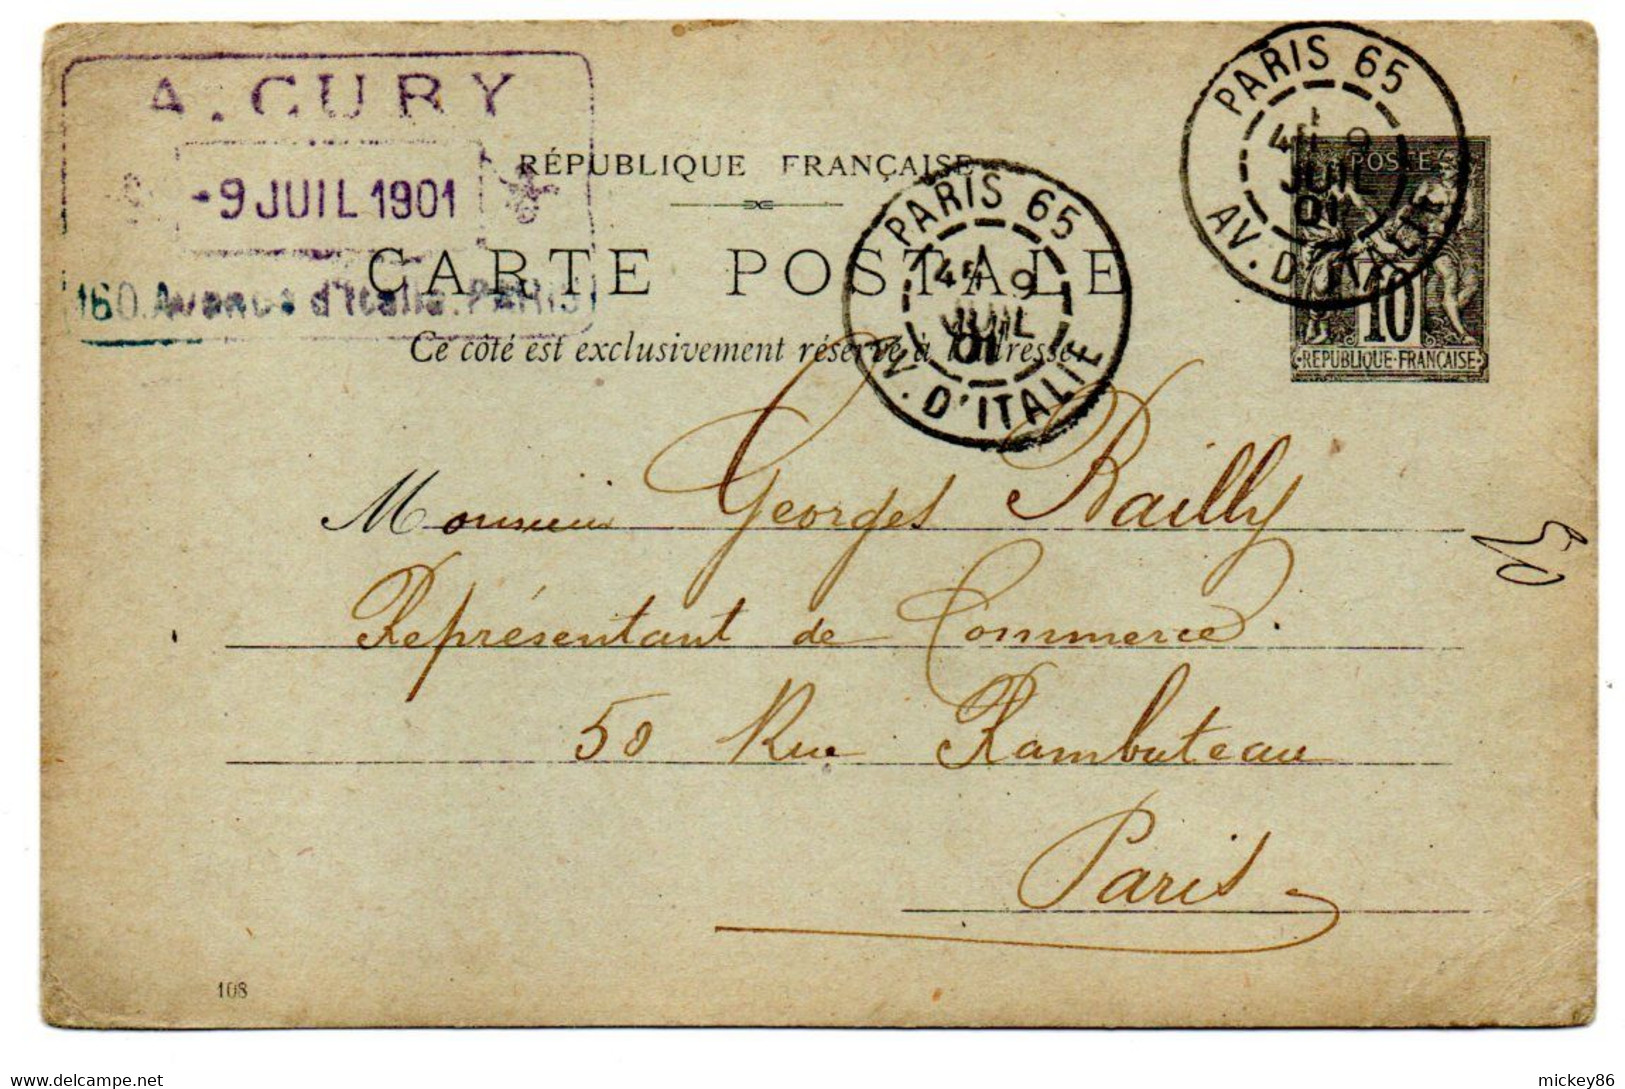 A. CURY
-9 JUIL 1901
160. Avenue d'Italie. PARIS
RÉPUBLIQUE FRANÇAISE
CARTE POSTALE
Ce côté est exclusivement réservé à l'adresse
PARIS 65
4E 9
JUIL
01
AV. D'ITALIE
PARIS 65
4E 9
JUIL
01
AV. D'ITALIE
POSTE
10
RÉPUBLIQUE·FRANÇAISE
Monsieur Georges Bailly
Représentant de Commerce.
50 Rue Rambuteau
Paris
108
mickey86